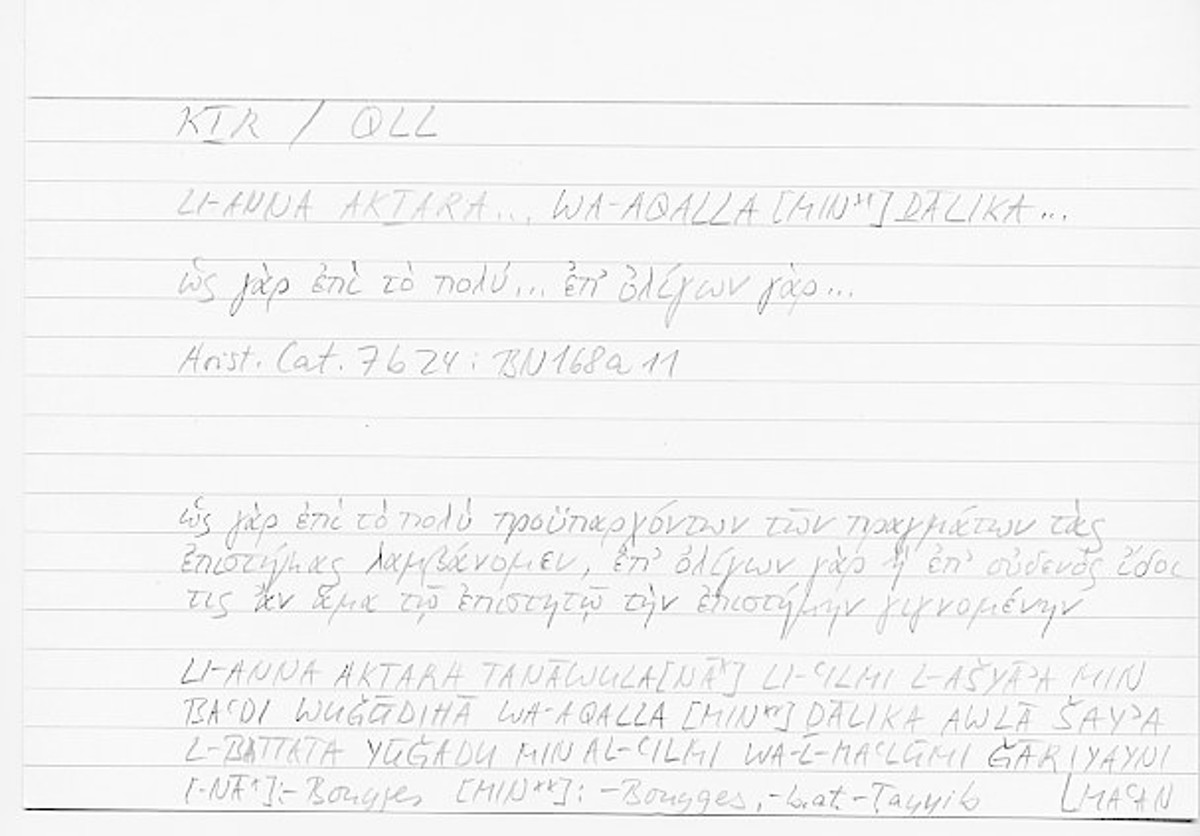 KṮR / QLL
LI-ANNA AKṮARA... WA-AQALLA [MIN**] ḎĀLIKA...
ὡς γὰρ ἐπὶ τὸ πολύ... ἐπ' ὀλίγων γὰρ...
Arist. Cat. 7b24 : BN168a11
ὡς γὰρ ἐπὶ τὸ πολὺ προϋπαρχόντων τῶν πραγμάτων τὰς
ἐπιστήμας λαμβάνομεν, ἐπ' ὀλίγων γὰρ ἢ ἐπ' οὐδενὸς ἴδοι
τις ἂν ἅμα τῷ ἐπιστητῷ τὴν ἐπιστήμην γιγνομένην
LI-ANNA AKṮARA TANĀWULA[NĀ*] LI-ʿILMI L-AŠYĀʾA MIN
BAʿDI WUǦŪDIHĀ WA-AQALLA [MIN**] ḎĀLIKA AWLĀ ŠAYʾA
L-BATTATA YŪǦADU MIN AL-ʿILMI WA-L-MAʿLŪMI ǦĀRIYAYNI
[-NĀ*]:-Bouyges [MIN**]: -Bouyges, -Tayyib ⌊MAʿAN